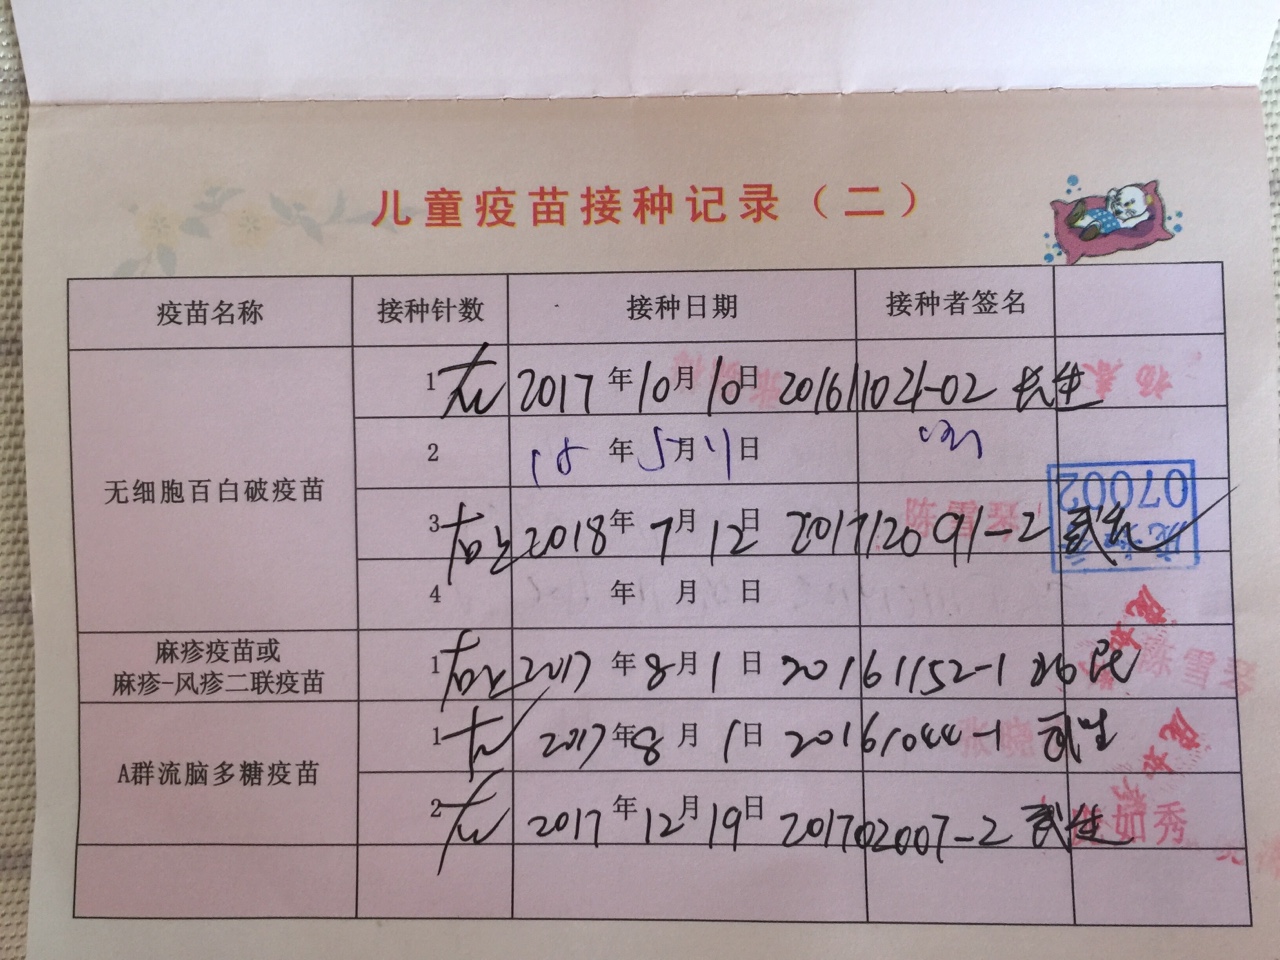 儿童疫苗接种记录（二）
疫苗名称 接种针数 接种日期 接种者签名
无细胞百白破疫苗
1 左 2017年10月10日 201611021-02 长生
2 18年5月11日
3 右上 2018年7月12日 201712091-2 武生
07002
陈雪琴
4 年 月 日
麻疹疫苗或
麻疹-风疹二联疫苗
1 右上 2017年8月1日 20161152-1
陈雪琴
A群流脑多糖疫苗
1 左 2017年8月1日 20161044-1 武生
2 左 2017年12月19日 201702007-2 武生
如秀